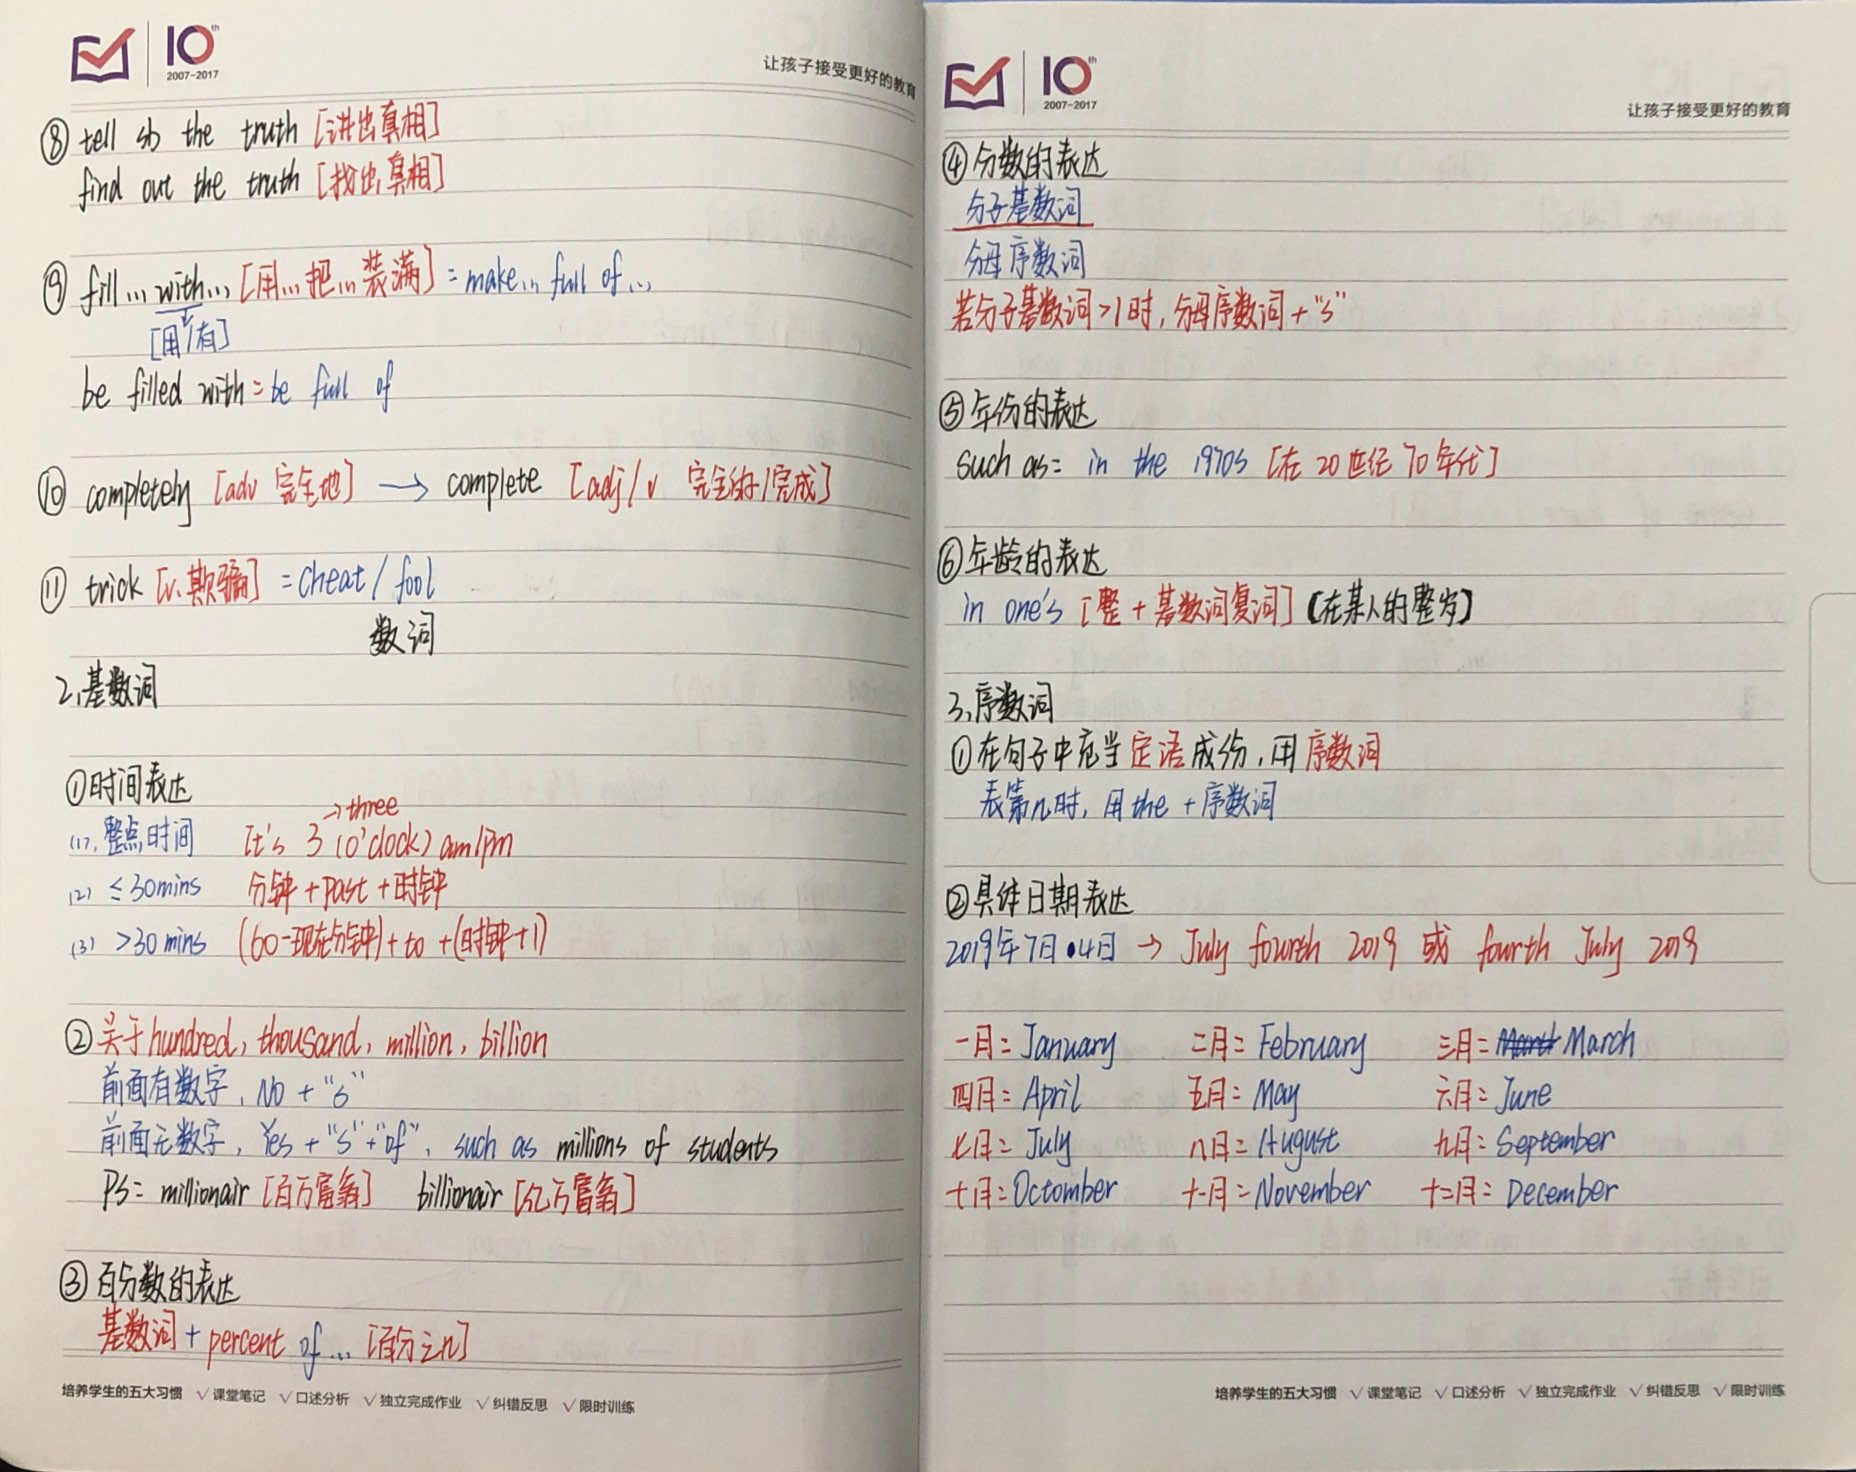 10th
2007-2017
让孩子接受更好的教育
⑧ tell sb the truth [讲出真相]
find out the truth [找出真相]
⑨ fill... with... [用...把...装满] = make... full of...
[用/有]
be filled with = be full of
⑩ completely [adv 完全地] → complete [adj/v 完全的/完成]
⑪ trick [v. 欺骗] = cheat / fool
数词
2.基数词
①时间表达
→three
(1).整点时间 It's 3 (o'clock) am/pm
(2) ≤30mins 分钟+past+时钟
(3) >30mins (60-现在分钟)+to+(时钟+1)
②关于hundred, thousand, million, billion
前面有数字, No + "s"
前面无数字, Yes + "s"+"of", such as millions of students
PS= millionair [百万富翁] billionair [亿万富翁]
③百分数的表达
基数词 + percent of ... [百分之n]
培养学生的五大习惯 √课堂笔记 √口述分析 √独立完成作业 √纠错反思 √限时训练
10th
2007-2017
让孩子接受更好的教育
④分数的表达
分子基数词
分母序数词
若分子基数词>1时,分母序数词+"s"
⑤年份的表达
such as= in the 1970s [在20世纪70年代]
⑥年龄的表达
in one's [整+基数词复词] 【在某人的整岁】
3.序数词
①在句子中充当定语成份,用序数词
表第n时,用the+序数词
②具体日期表达
2019年7日·4日 → July fourth 2019 或 fourth July 2019
一月= January 二月= February 三月= March
四月= April 五月= May 六月= June
七月= July 八月= August 九月= September
十月= Octomber 十一月= November 十二月= December
培养学生的五大习惯 √课堂笔记 √口述分析 √独立完成作业 √纠错反思 √限时训练